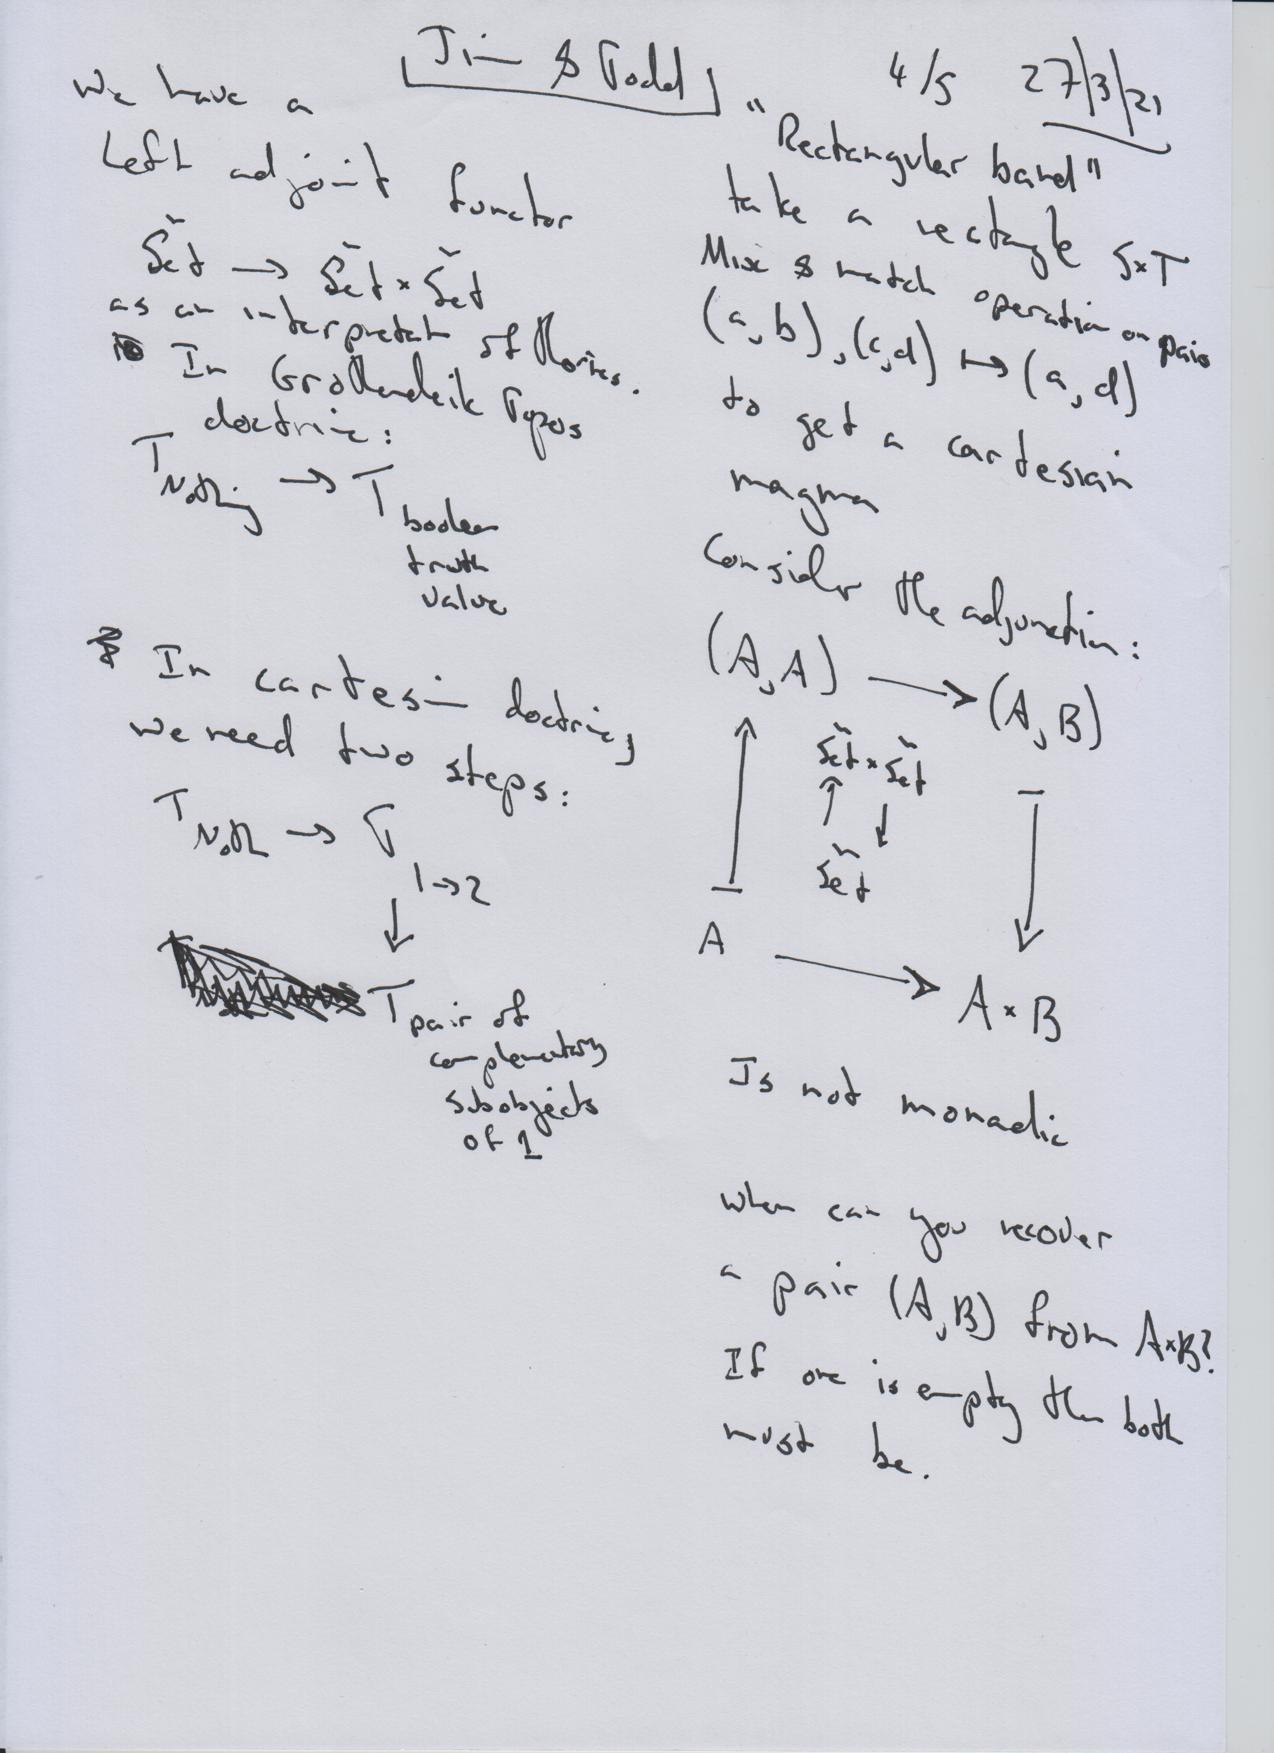 Jim & Todd
4/5 27/3/21
We have a
Left adjoint functor
Set → Set × Set
as an interpretatn of theories.
In Grothendeik Topos
doctrine:
T Nothing → T boolean
truth
value
In cartesian doctrine,
we need two steps:
T Noth → T 1→2
↓
T pair of
complementary
subobjects
of 1
"Rectangular band"
take a rectangle S×T
Mix & match operation on pairs
(a,b),(c,d) ↦ (a,d)
to get a cartesian
magma
Consider the adjunction:
(A,A) → (A,B)
Set × Set
↑ ↓
Set
A → A × B
Is not monadic
When can you recover
a pair (A,B) from A×B?
If one is empty then both
must be.